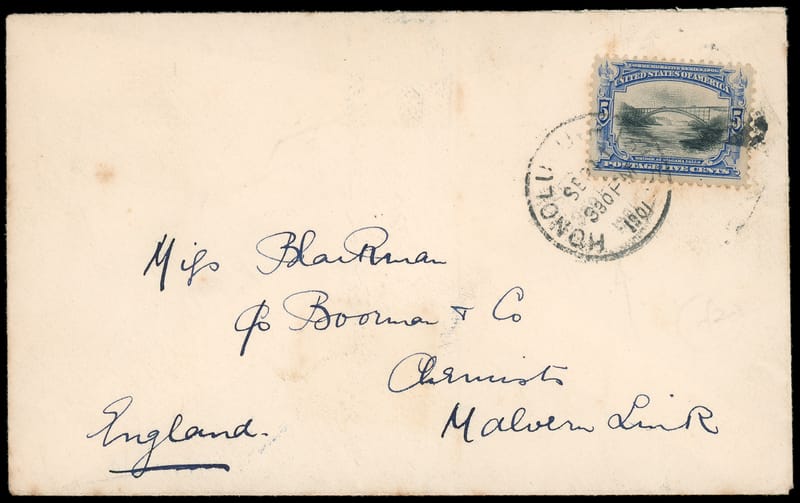 COMMEMORATIVE SERIES 1901
UNITED STATES OF AMERICA
5 5
BRIDGE AT NIAGARA FALLS
POSTAGE FIVE CENTS
HONOLULU
1901
Miss Blackman
c/o Boorman & Co
Chemists
Malvern Link
England.